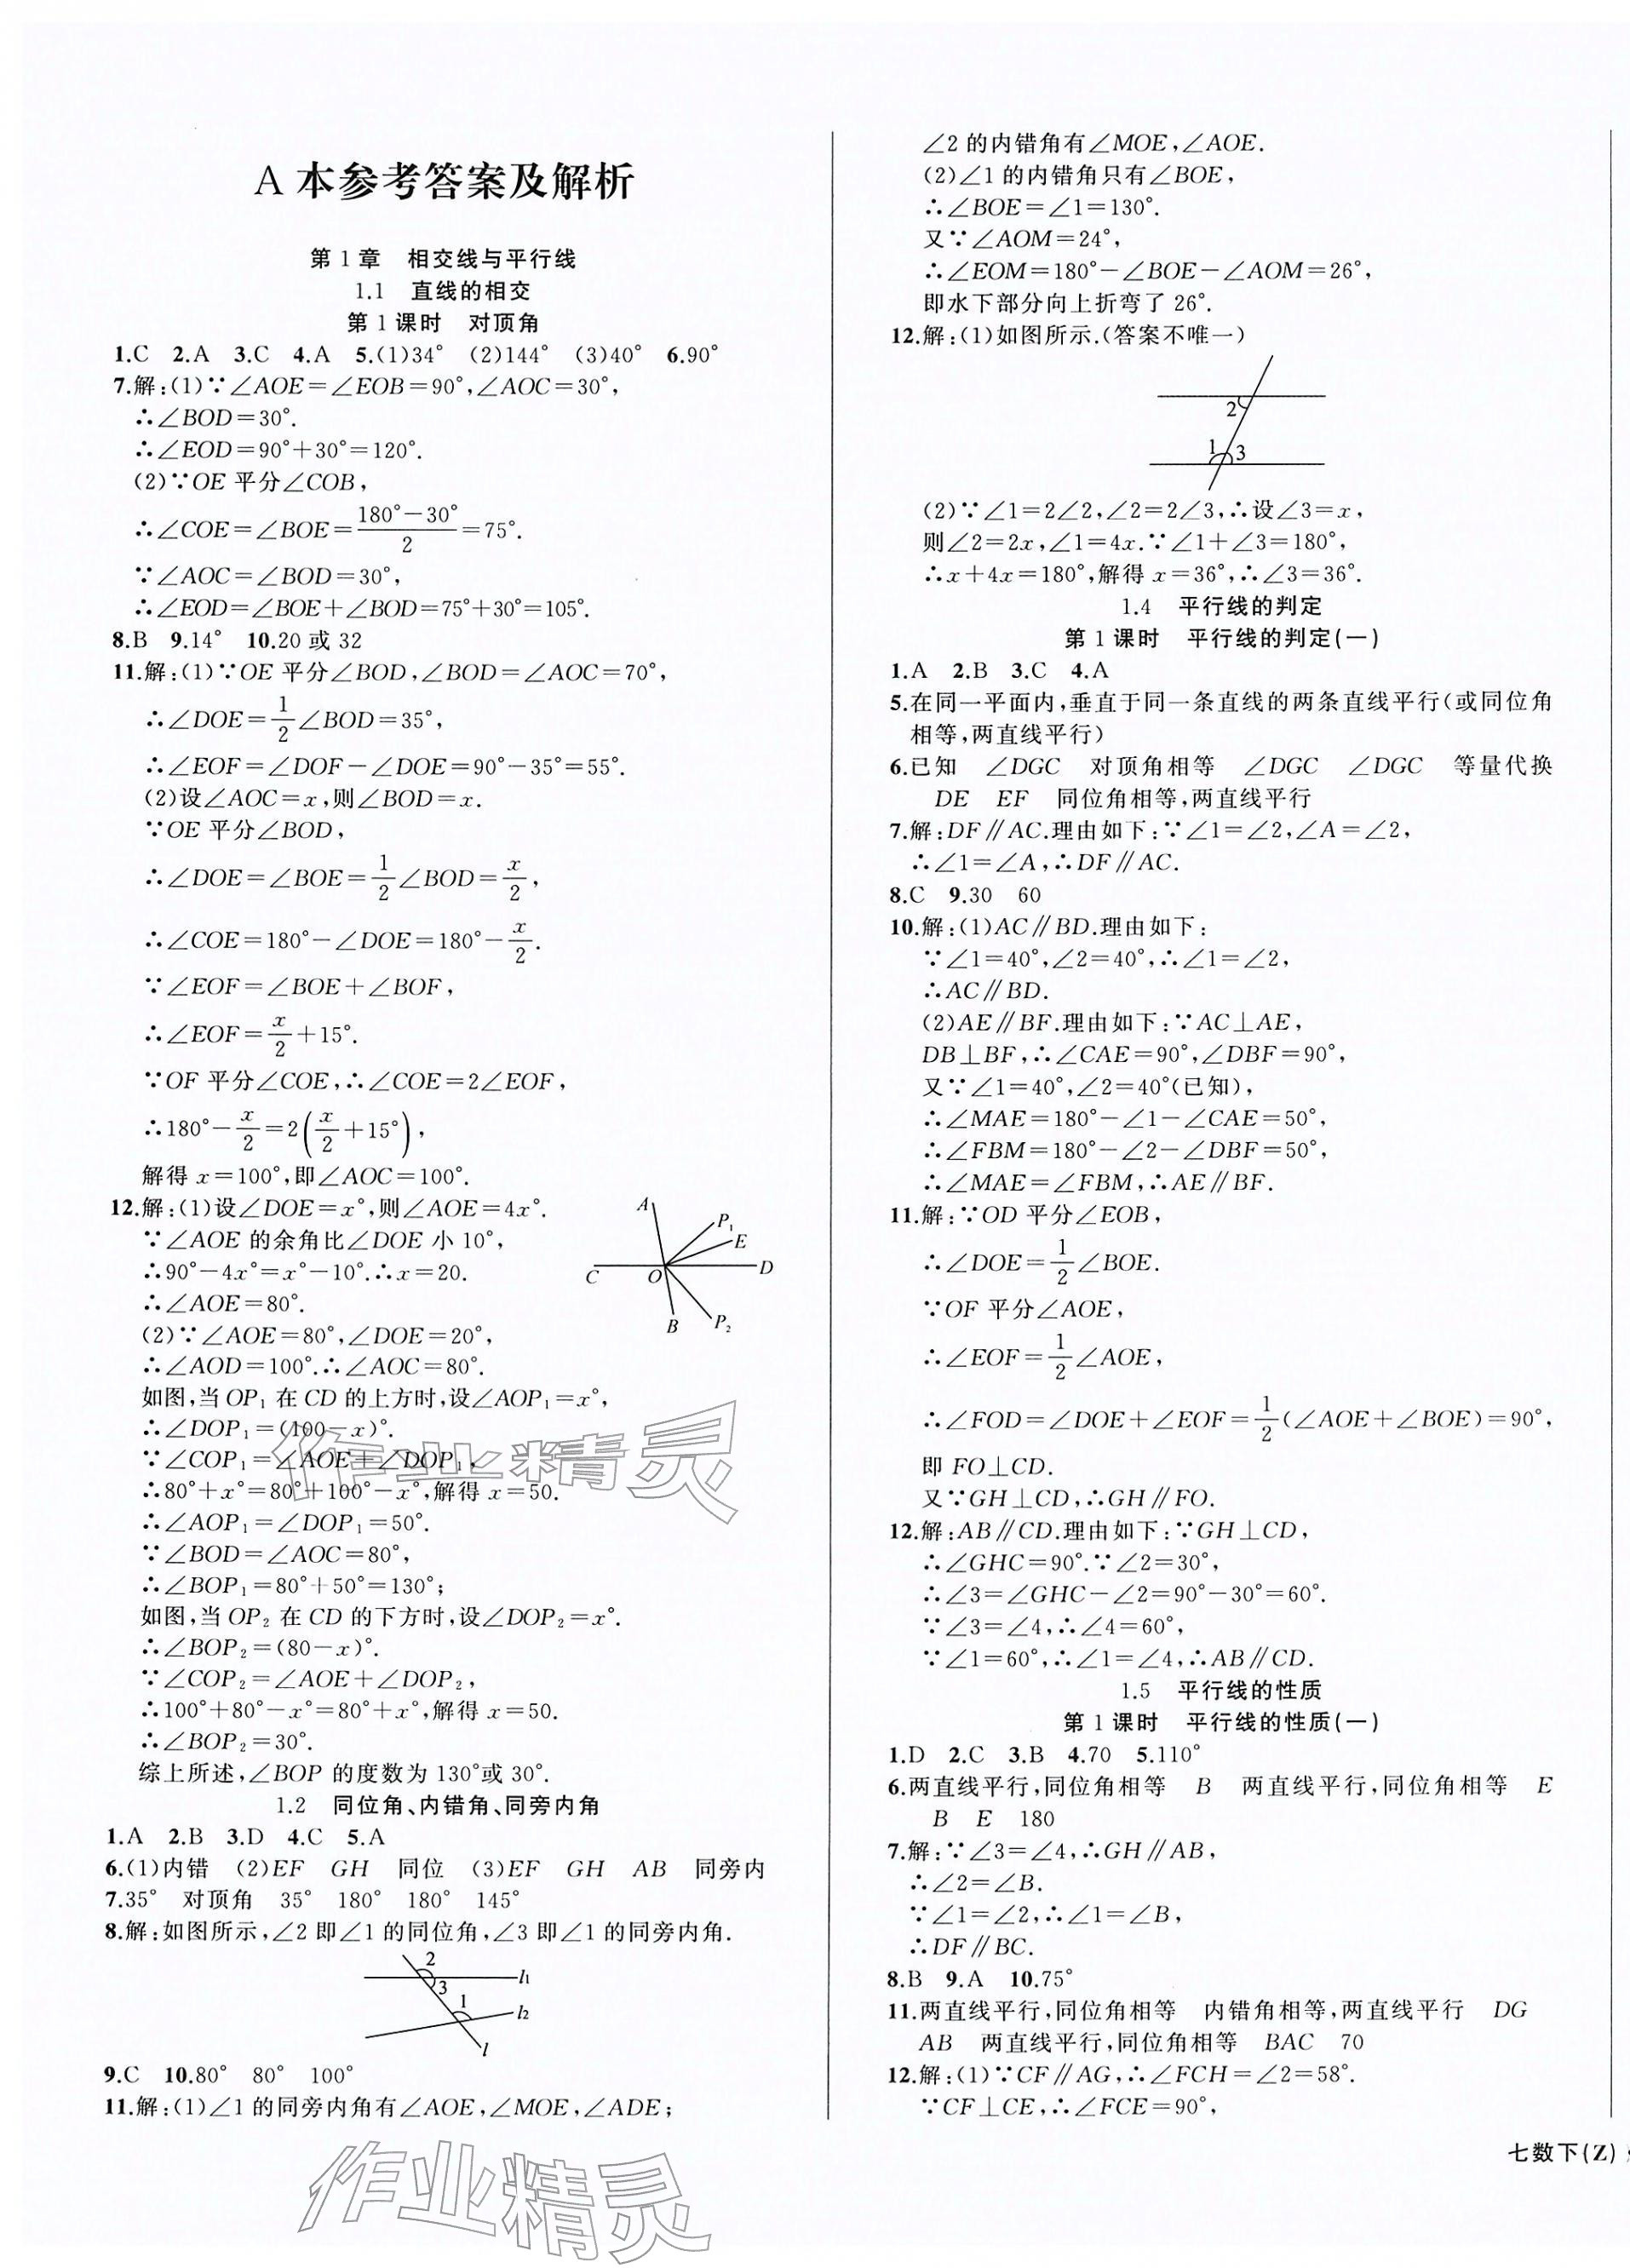 A 本参考答案及解析
第 1 章　相交线与平行线
1.1　直线的相交
第 1 课时　对顶角
1.C　2.A　3.C　4.A　5.(1)34°　(2)144°　(3)40°　6.90°
7.解:(1)∵∠AOE=∠EOB=90°,∠AOC=30°,
∴∠BOD=30°.
∴∠EOD=90°+30°=120°.
(2)∵OE 平分∠COB,
∴∠COE=∠BOE=(180°-30°)/2=75°.
∵∠AOC=∠BOD=30°,
∴∠EOD=∠BOE+∠BOD=75°+30°=105°.
8.B　9.14°　10.20 或 32
11.解:(1)∵OE 平分∠BOD,∠BOD=∠AOC=70°,
∴∠DOE=1/2∠BOD=35°,
∴∠EOF=∠DOF-∠DOE=90°-35°=55°.
(2)设∠AOC=x,则∠BOD=x.
∵OE 平分∠BOD,
∴∠DOE=∠BOE=1/2∠BOD=x/2,
∴∠COE=180°-∠DOE=180°-x/2.
∵∠EOF=∠BOE+∠BOF,
∴∠EOF=x/2+15°.
∵OF 平分∠COE,∴∠COE=2∠EOF,
∴180°-x/2=2(x/2+15°),
解得 x=100°,即∠AOC=100°.
12.解:(1)设∠DOE=x°,则∠AOE=4x°.
∵∠AOE 的余角比∠DOE 小 10°,
∴90°-4x°=x°-10°.∴x=20.
∴∠AOE=80°.
(2)∵∠AOE=80°,∠DOE=20°,
∴∠AOD=100°.∴∠AOC=80°.
A
P₁
E
C
O
D
B
P₂
如图,当 OP₁ 在 CD 的上方时,设∠AOP₁=x°,
∴∠DOP₁=(100-x)°.
∵∠COP₁=∠AOE+∠DOP₁,
∴80°+x°=80°+100°-x°,解得 x=50.
∴∠AOP₁=∠DOP₁=50°.
∵∠BOD=∠AOC=80°,
∴∠BOP₁=80°+50°=130°;
如图,当 OP₂ 在 CD 的下方时,设∠DOP₂=x°.
∴∠BOP₂=(80-x)°.
∵∠COP₂=∠AOE+∠DOP₂,
∴100°+80°-x°=80°+x°,解得 x=50.
∴∠BOP₂=30°.
综上所述,∠BOP 的度数为 130°或 30°.
1.2　同位角、内错角、同旁内角
1.A　2.B　3.D　4.C　5.A
6.(1)内错　(2)EF　GH　同位　(3)EF　GH　AB　同旁内
7.35°　对顶角　35°　180°　180°　145°
8.解:如图所示,∠2 即∠1 的同位角,∠3 即∠1 的同旁内角.
2
3
l₁
1
l₂
l
9.C　10.80°　80°　100°
11.解:(1)∠1 的同旁内角有∠AOE,∠MOE,∠ADE;
∠2 的内错角有∠MOE,∠AOE.
(2)∠1 的内错角只有∠BOE,
∴∠BOE=∠1=130°.
又∵∠AOM=24°,
∴∠EOM=180°-∠BOE-∠AOM=26°,
即水下部分向上折弯了 26°.
12.解:(1)如图所示.(答案不唯一)
2
1
3
(2)∵∠1=2∠2,∠2=2∠3,∴设∠3=x,
则∠2=2x,∠1=4x.∵∠1+∠3=180°,
∴x+4x=180°,解得 x=36°,∴∠3=36°.
1.4　平行线的判定
第 1 课时　平行线的判定(一)
1.A　2.B　3.C　4.A
5.在同一平面内,垂直于同一条直线的两条直线平行(或同位角
相等,两直线平行)
6.已知　∠DGC　对顶角相等　∠DGC　∠DGC　等量代换
DE　EF　同位角相等,两直线平行
7.解:DF∥AC.理由如下:∵∠1=∠2,∠A=∠2,
∴∠1=∠A,∴DF∥AC.
8.C　9.30　60
10.解:(1)AC∥BD.理由如下:
∵∠1=40°,∠2=40°,∴∠1=∠2,
∴AC∥BD.
(2)AE∥BF.理由如下:∵AC⊥AE,
DB⊥BF,∴∠CAE=90°,∠DBF=90°,
又∵∠1=40°,∠2=40°(已知),
∴∠MAE=180°-∠1-∠CAE=50°,
∴∠FBM=180°-∠2-∠DBF=50°,
∴∠MAE=∠FBM,∴AE∥BF.
11.解:∵OD 平分∠EOB,
∴∠DOE=1/2∠BOE.
∵OF 平分∠AOE,
∴∠EOF=1/2∠AOE,
∴∠FOD=∠DOE+∠EOF=1/2(∠AOE+∠BOE)=90°,
即 FO⊥CD.
又∵GH⊥CD,∴GH∥FO.
12.解:AB∥CD.理由如下:∵GH⊥CD,
∴∠GHC=90°.∵∠2=30°,
∴∠3=∠GHC-∠2=90°-30°=60°.
∵∠3=∠4,∴∠4=60°,
∵∠1=60°,∴∠1=∠4,∴AB∥CD.
1.5　平行线的性质
第 1 课时　平行线的性质(一)
1.D　2.C　3.B　4.70　5.110°
6.两直线平行,同位角相等　B　两直线平行,同位角相等　E
B　E　180
7.解:∵∠3=∠4,∴GH∥AB,
∴∠2=∠B.
∵∠1=∠2,∴∠1=∠B,
∴DF∥BC.
8.B　9.A　10.75°
11.两直线平行,同位角相等　内错角相等,两直线平行　DG
AB　两直线平行,同位角相等　BAC　70
12.解:(1)∵CF∥AG,∴∠FCH=∠2=58°.
∵CF⊥CE,∴∠FCE=90°,
七数下(Z)
作业精灵
作业精灵